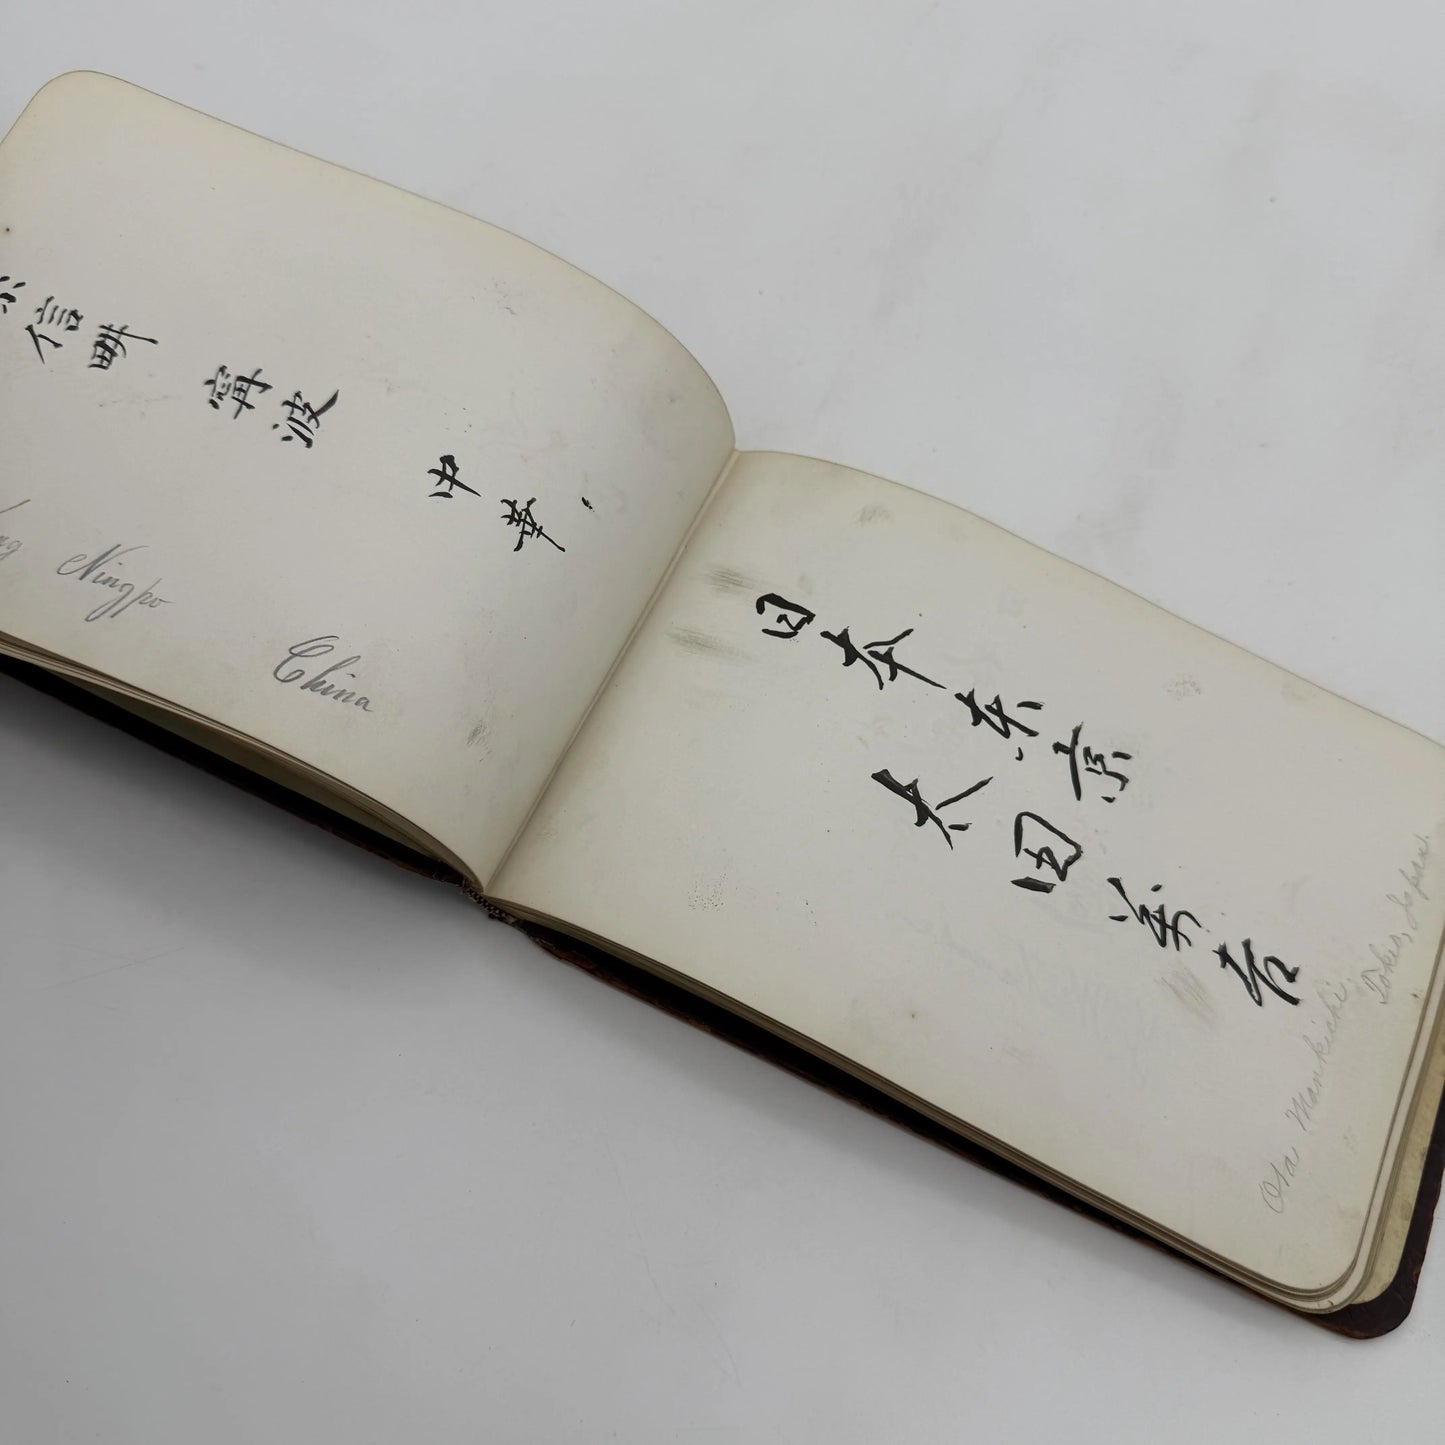 信畊 寗波 中華
Ningpo
China
日本東京
太田萬吉
Ota Mankichi,
Tokio, Japan.